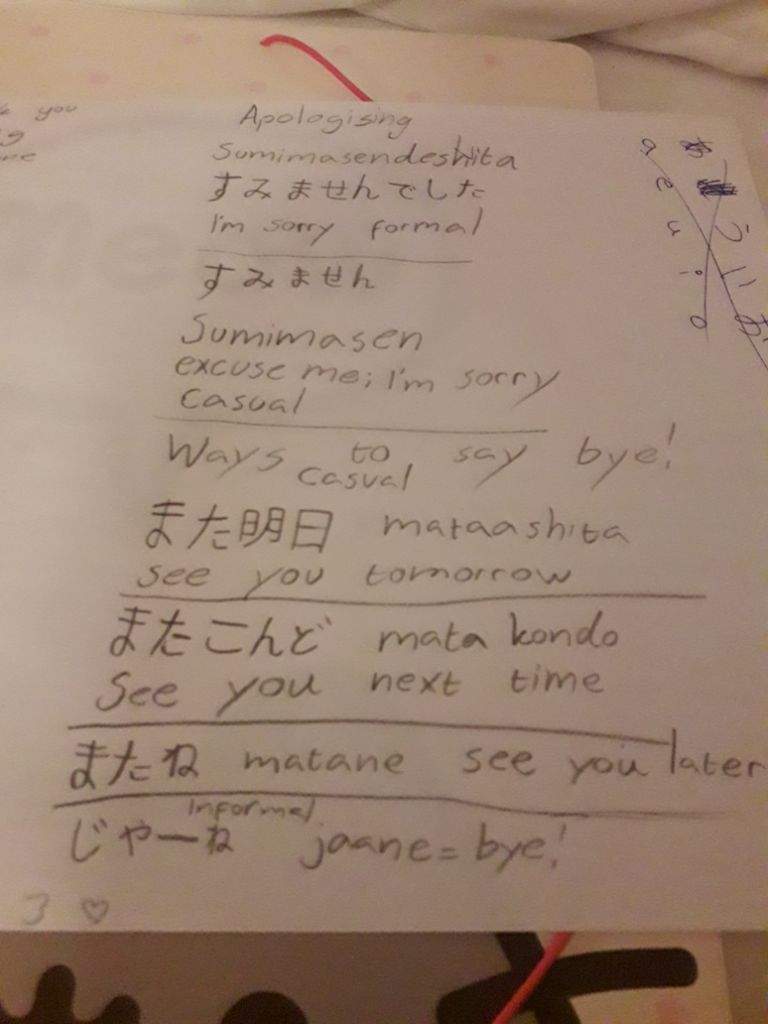 you
Apologising
Sumimasendeshita
すみませんでした
I'm sorry formal
すみません
Sumimasen
excuse me; I'm sorry
casual
Ways to say bye!
casual
また明日 mataashita
see you tomorrow
またこんど mata kondo
See you next time
またね matane see you later
informal
じゃーね jaane = bye!
3 ♡
あ
a
e
u う
i い
o お